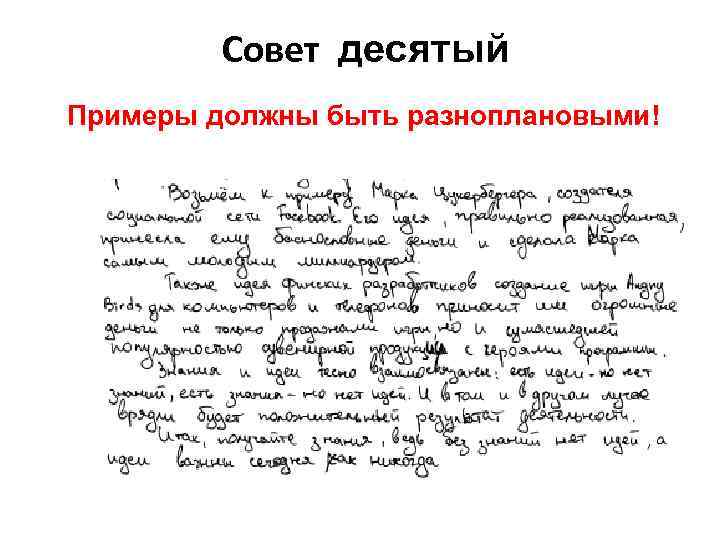 Совет десятый
Примеры должны быть разноплановыми!
Возьмём к примеру Марка Цукербергера, создателя
социальной сети Facebook. Его идея, правильно реализованная,
принесла ему баснословные деньги и сделала Марка
самым молодым миллиардером.
Также идея финских разработчиков создание игры Angry
Birds для компьютеров и телефонов приносит им огромные
деньги не только продажами игры но и сумасшедшей
популярностью сувенирной продукции с героями программы.
Знания и идеи тесно взаимосвязаны: есть идеи - но нет
знаний, есть знания - но нет идей. И в том и в другом случае
врядли будет положительный результат деятельности.
Итак, получайте знания, ведь без знаний нет идей, а
идеи важны сегодня как никогда